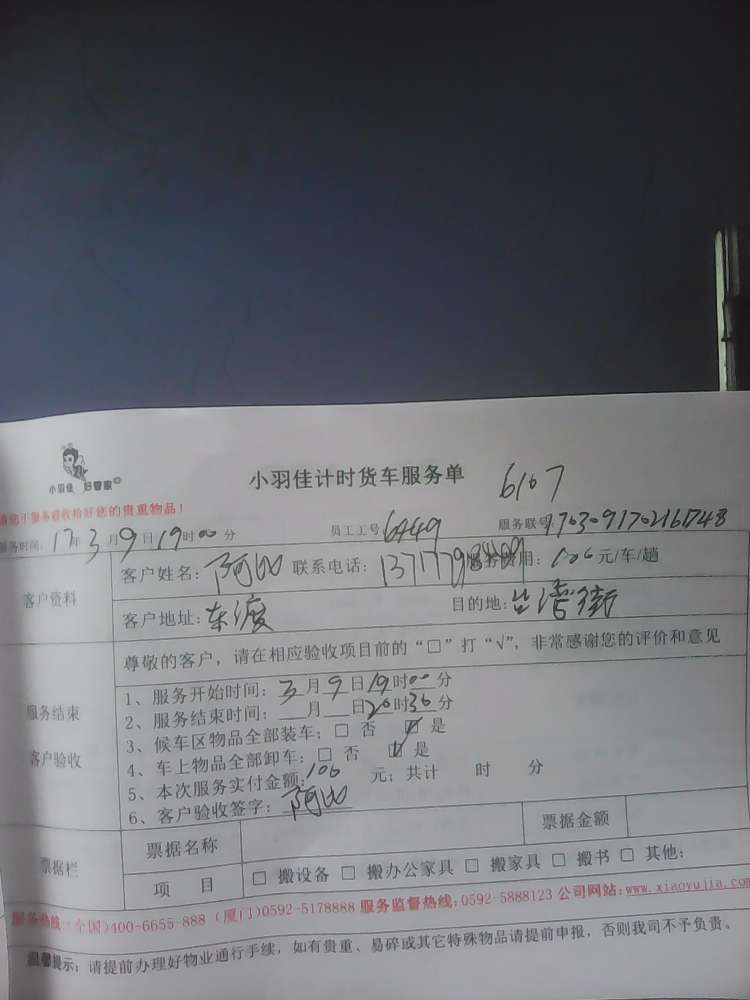 小羽佳 好管家
小羽佳计时货车服务单
6107
请您于服务前收拾好您的贵重物品！
服务时间：17年3月9日19时00分 员工工号6449 服务联号
客户资料
客户姓名：阿 联系电话： 费用：106元/车/趟
客户地址：东渡 目的地：台湾街
尊敬的客户，请在相应验收项目前的“□”打“√”，非常感谢您的评价和意见
服务结束
客户验收
1、服务开始时间：3月9日19时00分
2、服务结束时间：__月__日20时36分
3、候车区物品全部装车：□ 否 ☑ 是
4、车上物品全部卸车：□ 否 ☑ 是
5、本次服务实付金额：106元；共计 时 分
6、客户验收签字：阿
票据栏
票据名称 票据金额
项 目 □ 搬设备 □ 搬办公家具 □ 搬家具 □ 搬书 □ 其他：
服务热线：(全国)400-6655-888 (厦门)0592-5178888 服务监督热线：0592-5888123 公司网站：www.xiaoyujia.com
温馨提示：请提前办理好物业通行手续，如有贵重、易碎或其它特殊物品请提前申报，否则我司不予负责。